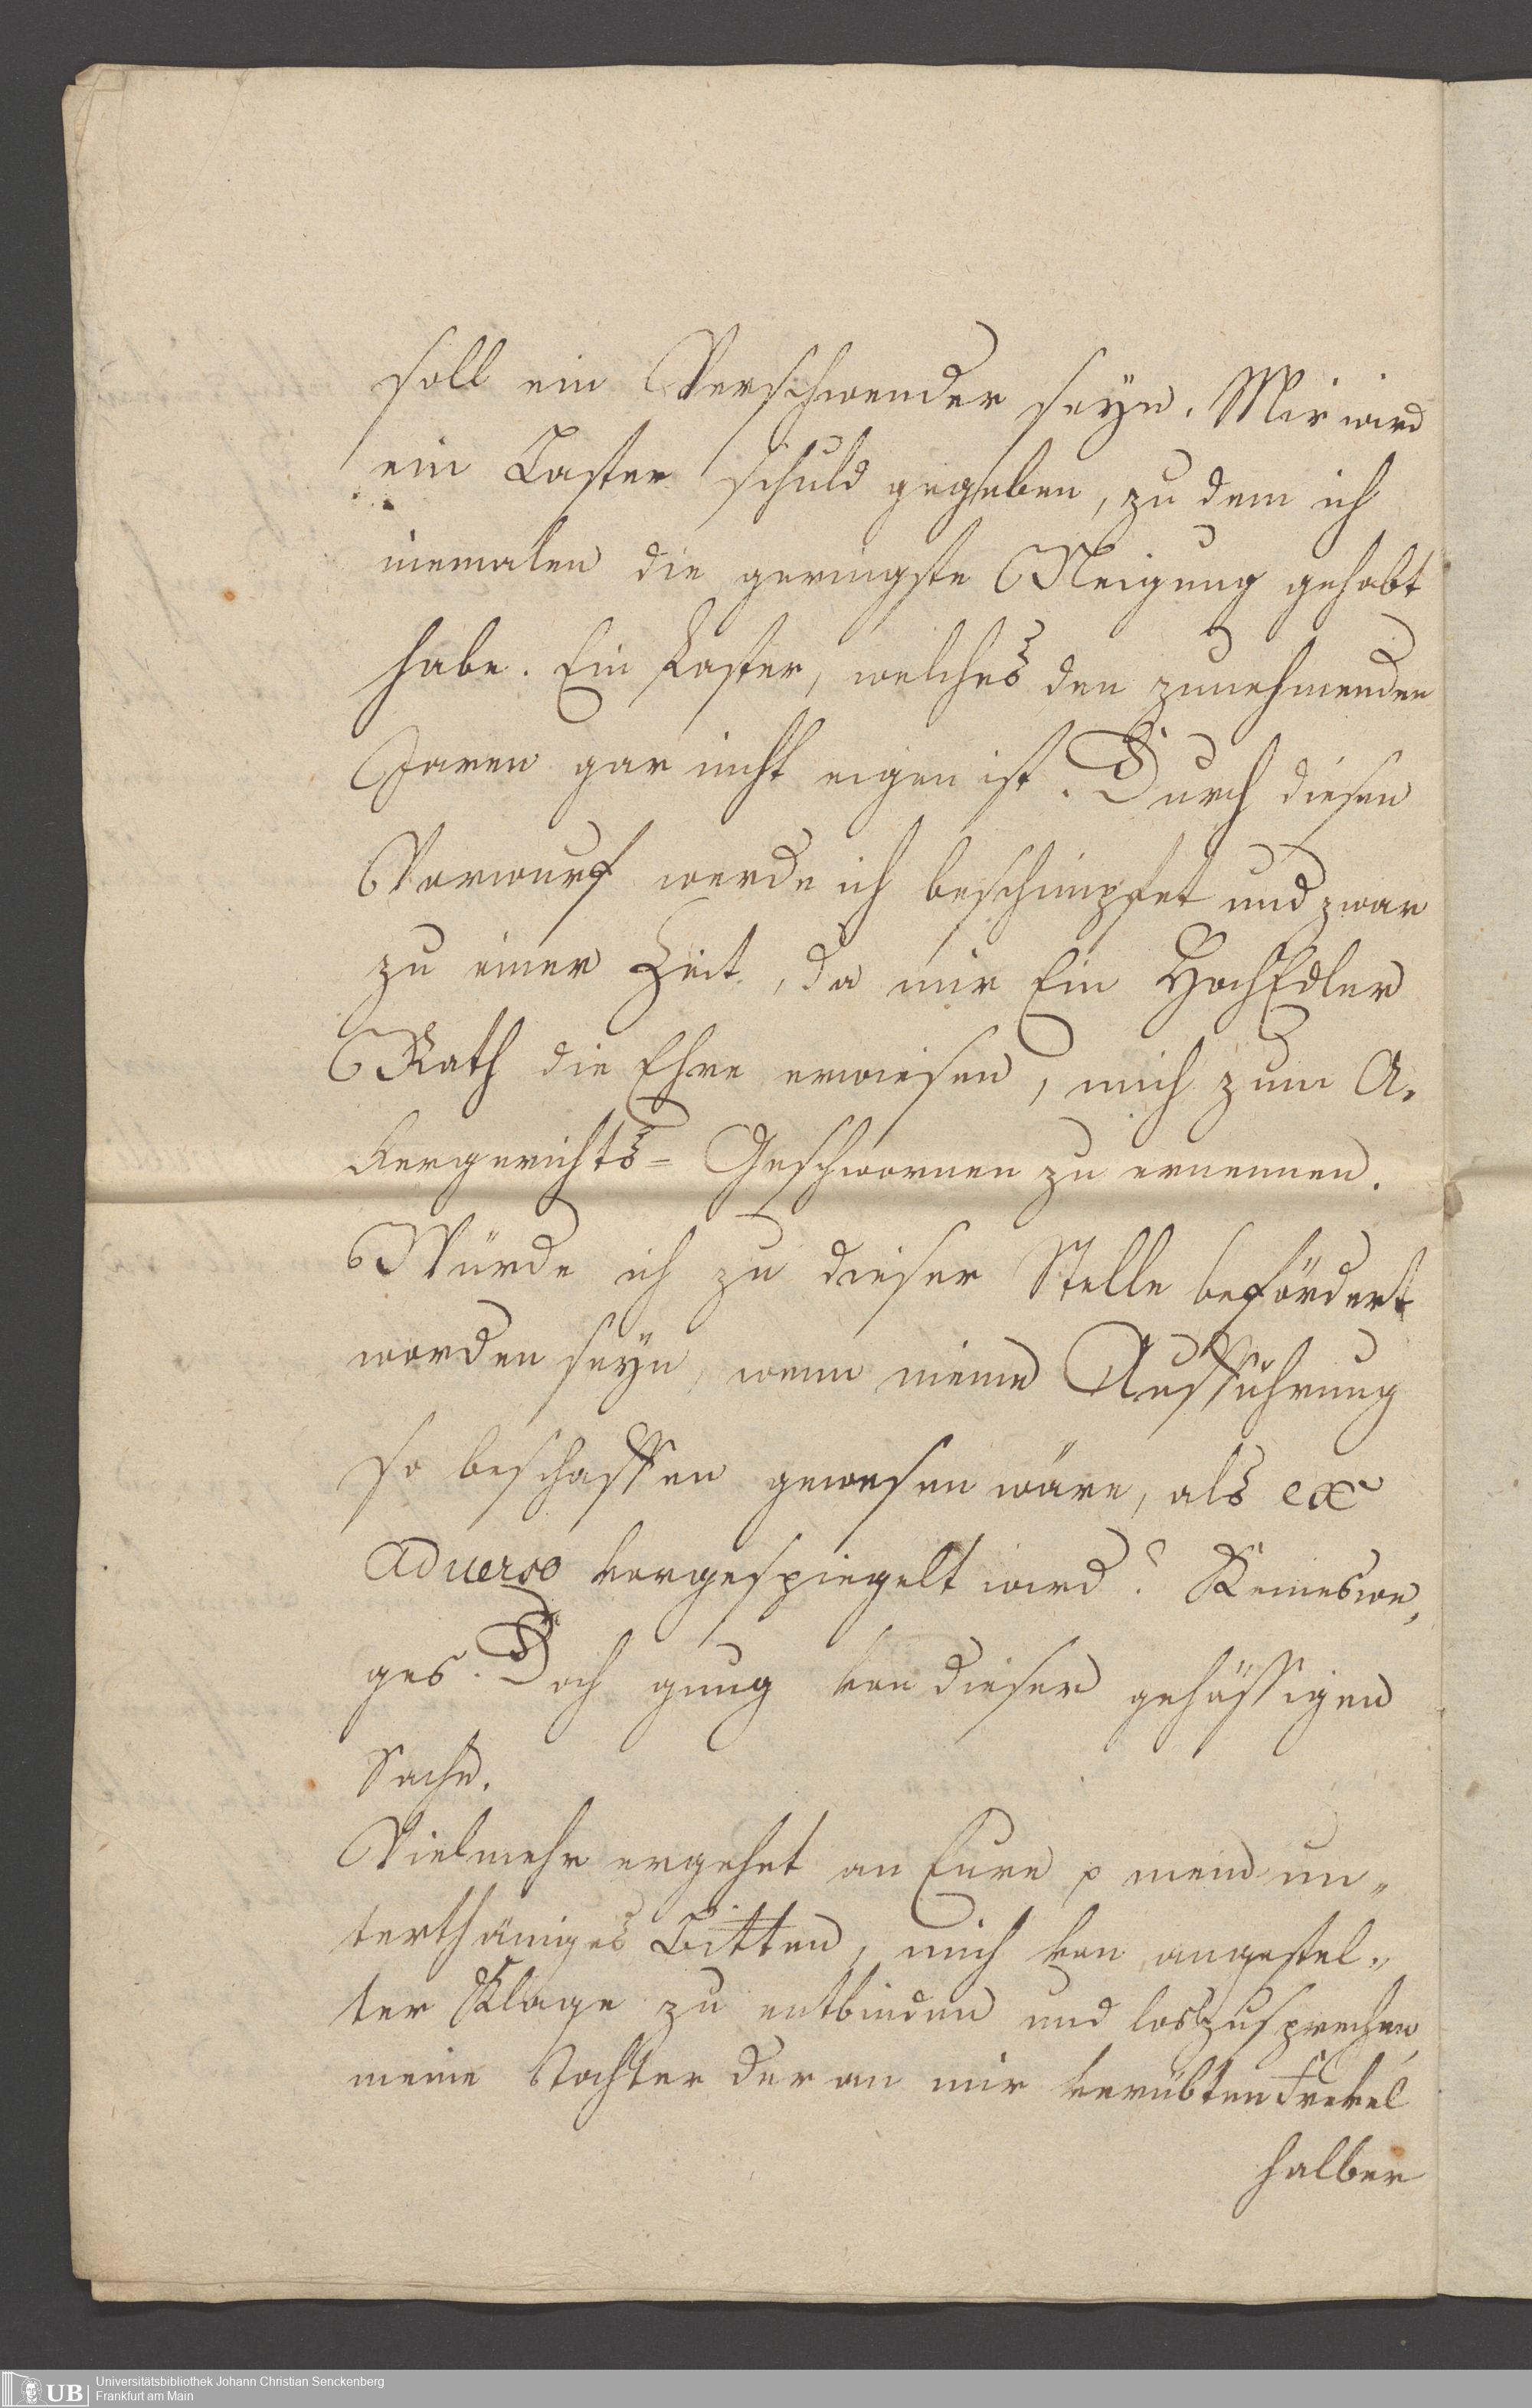 soll ein Verschwender seyn. Mir wird
ein Laster schuld gegeben, zu dem ich
niemalen die geringste Neigung gehabt
habe. Ein Laster, welches den zunehmenden
Jaren gar nicht eigen ist. Durch diesen
Vorwurf werde ich beschimpfet und zwar
zu einer Zeit, da mir Ein HochEdler
Rath die Ehre erwiesen, mich zum A-
kergerichts-Geschwornen zu ernennen.
Würde ich zu dieser Stelle befördert
worden seyn, wenn meine Aufführung
so beschaffen gewesen wäre, als ex
aduerso vorgespiegelt wird? Keineswe-
ges. Doch gnug von dieser gehässigen
Sache.
Vielmehr ergehet an Eure p mein un-
terthäniges Bitten, mich von angestel-
ter Klage zu entbinden und loszusprechen,
meine Tochter der an mir verübten Frevel
halber
Universitätsbibliothek Johann Christian Senckenberg
Frankfurt am Main
UB